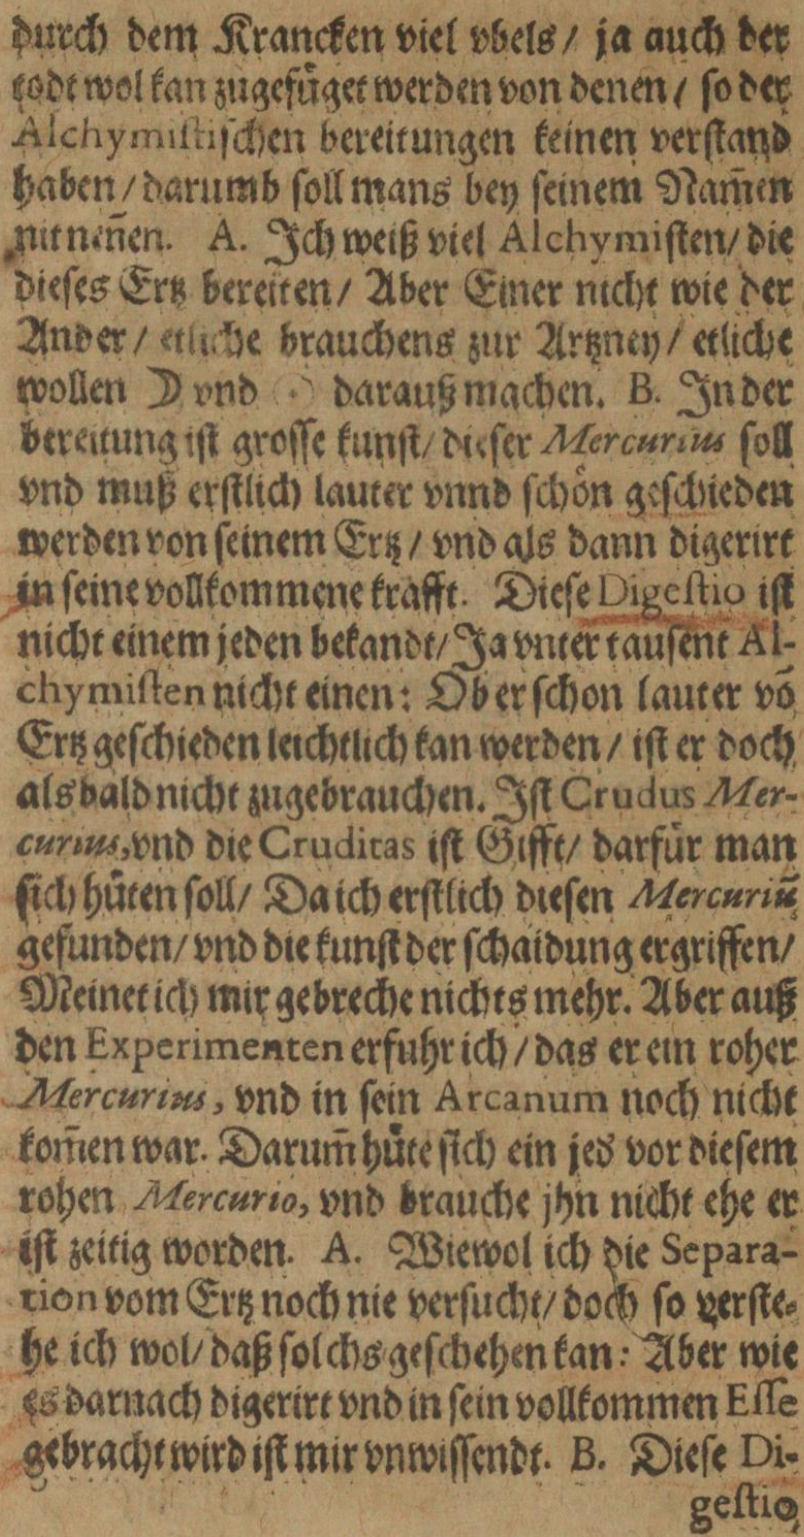 durch dem Krancken viel vbels/ ja auch der
todt wol kan zugefüget werden von denen/ so der
Alchymistischen bereitungen keinen verstand
haben/ darumb soll mans bey seinem Nam̃en
nit neñen. A. Ich weiß viel Alchymisten/ die
dieses Ertz bereiten/ Aber Einer nicht wie der
Ander/ etliche brauchens zur Artzney/ etliche
wollen ☽ vnd ☉ darauß machen. B. In der
bereitung ist grosse kunst/ dieser Mercurius soll
vnd muß erstlich lauter vnnd schön geschieden
werden von seinem Ertz/ vnd als dann digerirt
in seine vollkommene krafft. Diese Digestio ist
nicht einem jeden bekandt/ Ja vnter tausent Al-
chymisten nicht einen: Ob er schon lauter võ
Ertz geschieden leichtlich kan werden/ ist er doch
alsbald nicht zugebrauchen. Ist Crudus Mer-
curius, vnd die Cruditas ist Gifft/ darfür man
sich hüten soll/ Da ich erstlich diesen Mercuriũ
gefunden/ vnd die kunst der schaidung ergriffen/
Meinet ich mir gebreche nichts mehr. Aber auß
den Experimenten erfuhr ich/ das er ein roher
Mercurius, vnd in sein Arcanum noch nicht
kom̃en war. Darum̃ hüte sich ein jed vor diesem
rohen Mercurio, vnd brauche jhn nicht ehe er
ist zeitig worden. A. Wiewol ich die Separa-
tion vom Ertz noch nie versucht/ doch so verste-
he ich wol/ daß solchs geschehen kan: Aber wie
es darnach digerirt vnd in sein vollkommen Esse
gebracht wird ist mir vnwissendt. B. Diese Di-
gestio